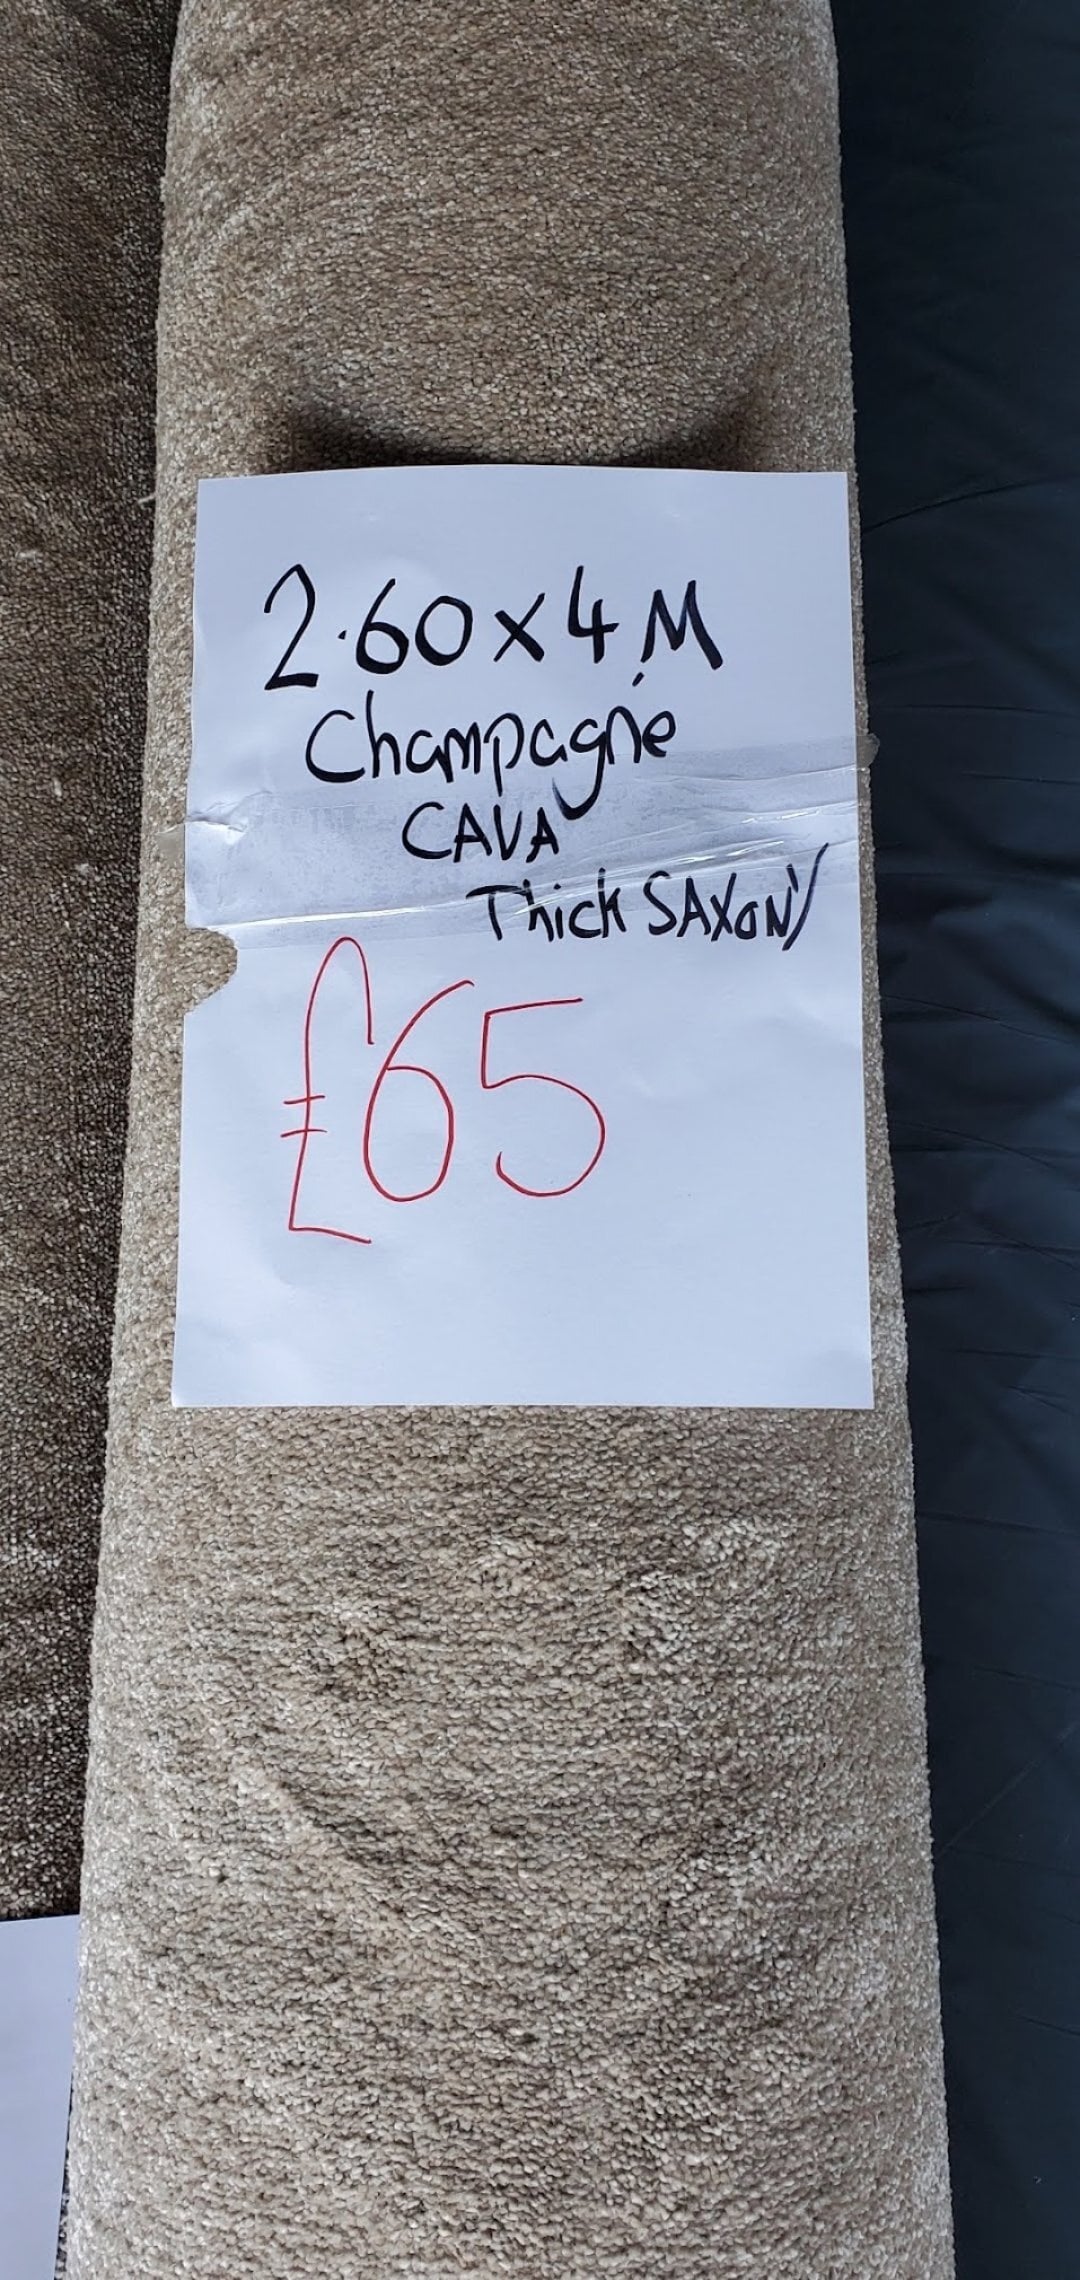 2.60 x 4 M
Champagne
CAVA
Thick SAXONY
£65